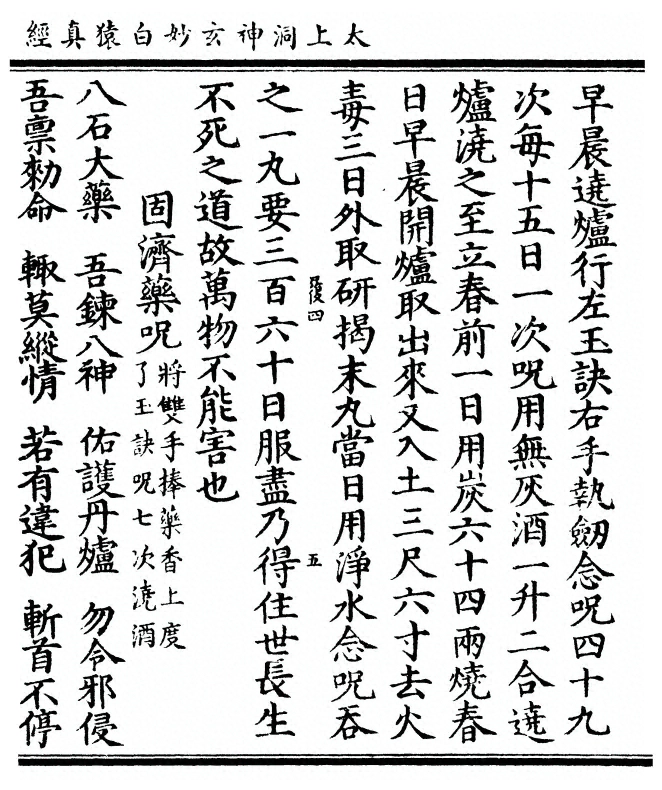 太上洞神玄妙白猿真經
早晨遶爐行左玉訣右手執劒念呪四十九
次每十五日一次呪用無灰酒一升二合遶
爐澆之至立春前一日用炭六十四兩燒春
日早晨開爐取出來又入土三尺六寸去火
毒三日外取研搗末丸當日用淨水念呪吞
履四 五
之一丸要三百六十日服盡乃得住世長生
不死之道故萬物不能害也
固濟藥呪將雙手捧藥香上度
了玉訣呪七次澆酒
八石大藥 吾鍊八神 佑護丹爐 勿令邪侵
吾禀勑命 輙莫縱情 若有違犯 斬首不停